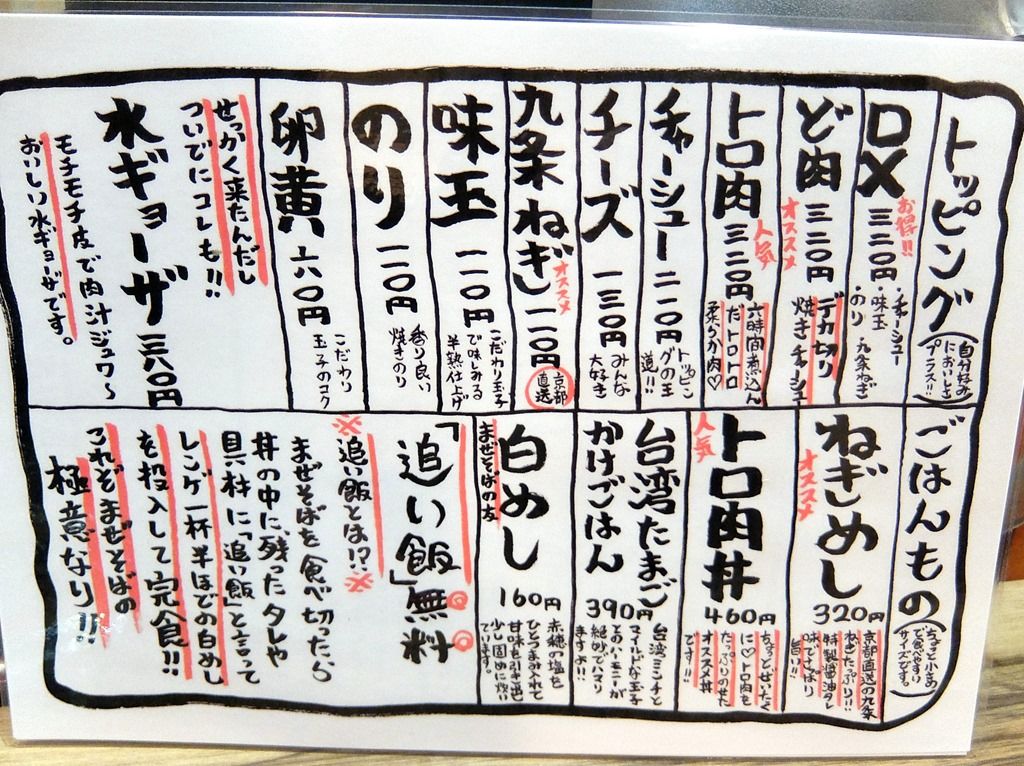 トッピング
(自分好み
においしさ
プラス!!)
DX
三三〇円
お得!!
・チャーシュー
・味玉
・のり
・九条ねぎ
ど肉
三三〇円
オススメ
デカ切り
焼きチャーシュー
トロ肉
三三〇円
人気
六時間煮込ん
だトロトロ
柔らか肉♡
チャーシュー
二一〇円
トッピン
グの王
道!!
チーズ
一三〇円
みんな
大好き
九条ねぎ
一一〇円
オススメ
京都
直送
味玉
一一〇円
こだわり玉子
で味しみる
半熟仕上げ
のり
一一〇円
香り良い
焼きのり
卵黄
六〇円
こだわり
玉子のコク
せっかく来たんだし
ついでにコレも!!
水ギョーザ
三八〇円
モチモチ皮で肉汁ジュワ〜
おいしい水ギョーザです。
ごはんもの
(ちょっと小さめ
で食べやすい
サイズです。)
ねぎめし
320円
オススメ
京都直送の九条
ねぎたっぷり!!
特製醤油タレ
味でさっぱり
旨い!!
トロ肉丼
460円
人気
ちょっとぜいたく
に♡トロ肉を
たっぷりのせた
オススメ丼
です!!
台湾たまご
かけごはん
390円
台湾ミンチと
マイルドな玉子
とのハーモニーが
絶妙でハマリ
ますよ!!
白めし
160円
まぜそばの友
赤穂の塩を
ひとつまみ入れて
甘味を引き出
少し固めに炊い
ています。
「追い飯」無料
※追い飯とは!?※
まぜそばを食べ切ったら
丼の中に残ったタレや
具材に「追い飯」と言って
レンゲ一杯半ほどの白めし
を投入して完食!!
これぞまぜそばの
極意なり!!